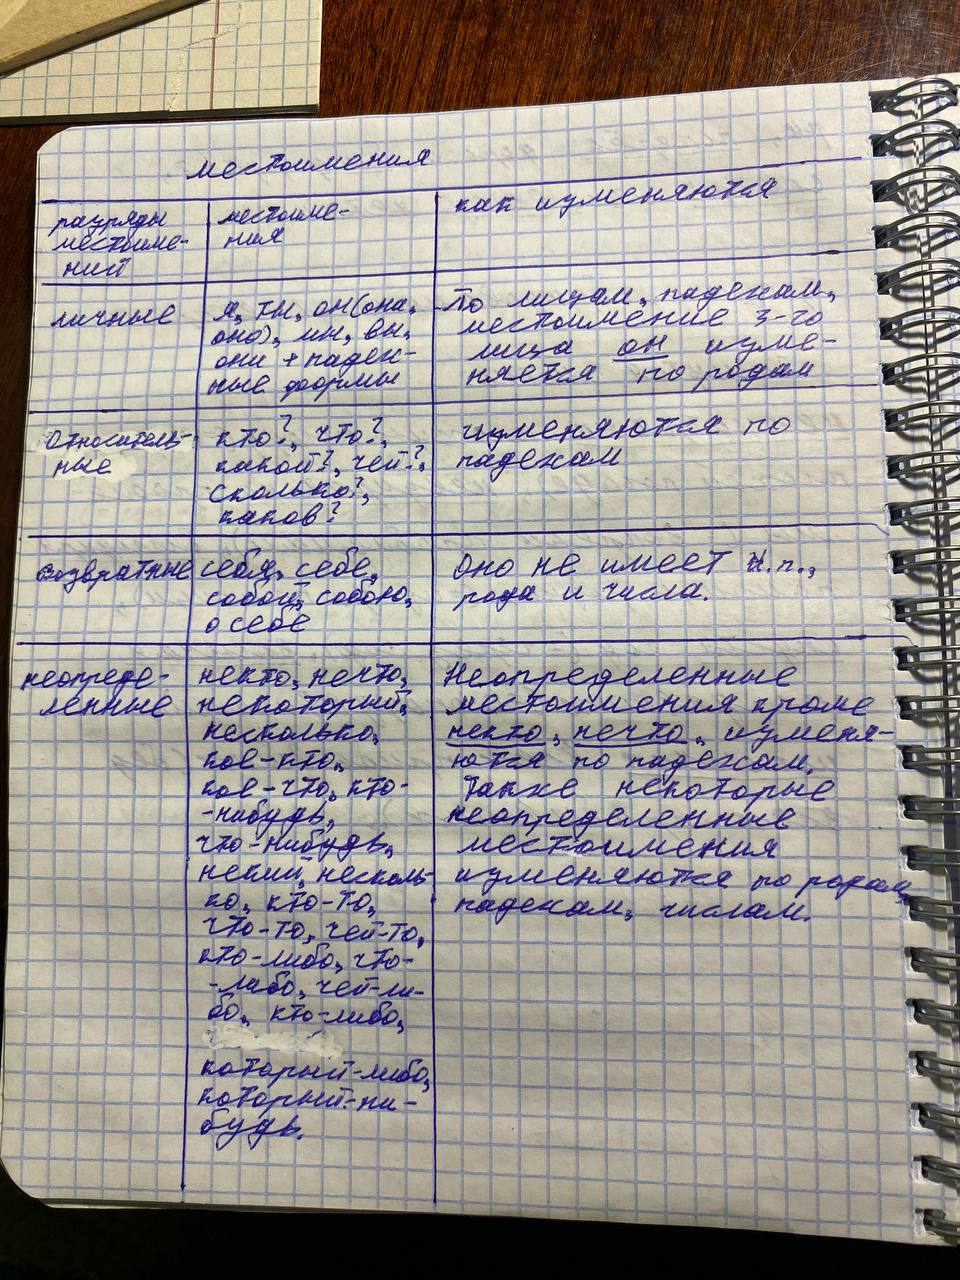 местоимения
разряды
местоиме-
ний
местоиме-
ния
как изменяются
личные
я, ты, он(она,
оно), мы, вы,
они + падеж-
ные формы
По лицам, падежам,
местоимение 3-го
лица он изме-
няется по родам
Относитель-
ные
кто?, что?,
какой?, чей?,
сколько?,
каков?
изменяются по
падежам
возвратные
себя, себе,
собой, собою,
о себе
Оно не имеет И.п.,
рода и числа.
неопреде-
ленные
некто, нечто,
некоторый,
несколько,
кое-кто,
кое-что, кто-
-нибудь,
что-нибудь,
некий, несколь-
ко, кто-то,
что-то, чей-то,
кто-либо, что-
-либо, чей-ли-
бо, кто-либо,
который-либо,
который-ни-
будь.
Неопределенные
местоимения кроме
некто, нечто, изменя-
ются по падежам.
Также некоторые
неопределенные
местоимения
изменяются по родам,
падежам, числам.